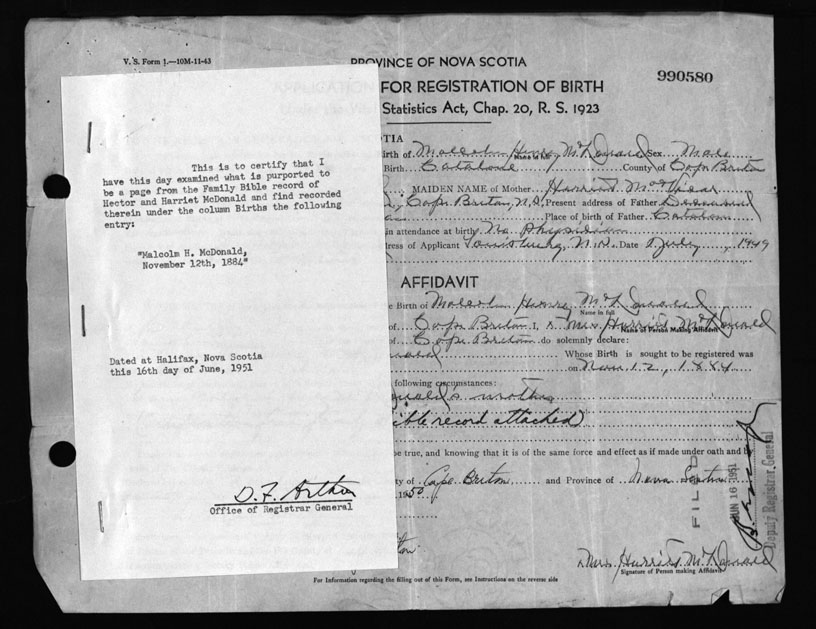 V. S. Form 1.—10M-11-43
PROVINCE OF NOVA SCOTIA
990580
APPLICATION FOR REGISTRATION OF BIRTH
Statistics Act, Chap. 20, R. S. 1923
This is to certify that I
have this day examined what is purported to
be a page from the Family Bible record of
Hector and Harriet McDonald and find recorded
therein under the column Births the following
entry:
"Malcolm H. McDonald,
November 12th, 1884"
Dated at Halifax, Nova Scotia
this 16th day of June, 1951
D. F. Arthur
Office of Registrar General
OTIA
Birth of Malcolm Henry McDonald Sex Male
Name in full
Birth Catalone County of Cape Breton
MAIDEN NAME of Mother Harriet
Cape Breton, N.S. Present address of Father Deceased
Place of birth of Father Catalone
in attendance at birth No Physician
dress of Applicant Louisburg, N.S. Date July 1949
AFFIDAVIT
e Birth of Malcolm Henry McDonald
Name in full
of Cape Breton I, Mrs. Harriet McDonald
Name of Person Making Affidavit
of Cape Breton do solemnly declare:
Whose Birth is sought to be registered was
on Nov. 12, 1884
following circumstances:
onald's mother
ible record attached)
be true, and knowing that it is of the same force and effect as if made under oath and
ty of Cape Breton and Province of Nova Scotia
1950
FILED
JUN 16 1951
Deputy Registrar General
Mrs. Harriet McDonald
Signature of Person making Affidavit
For Information regarding the filling out of this Form, see Instructions on the reverse side